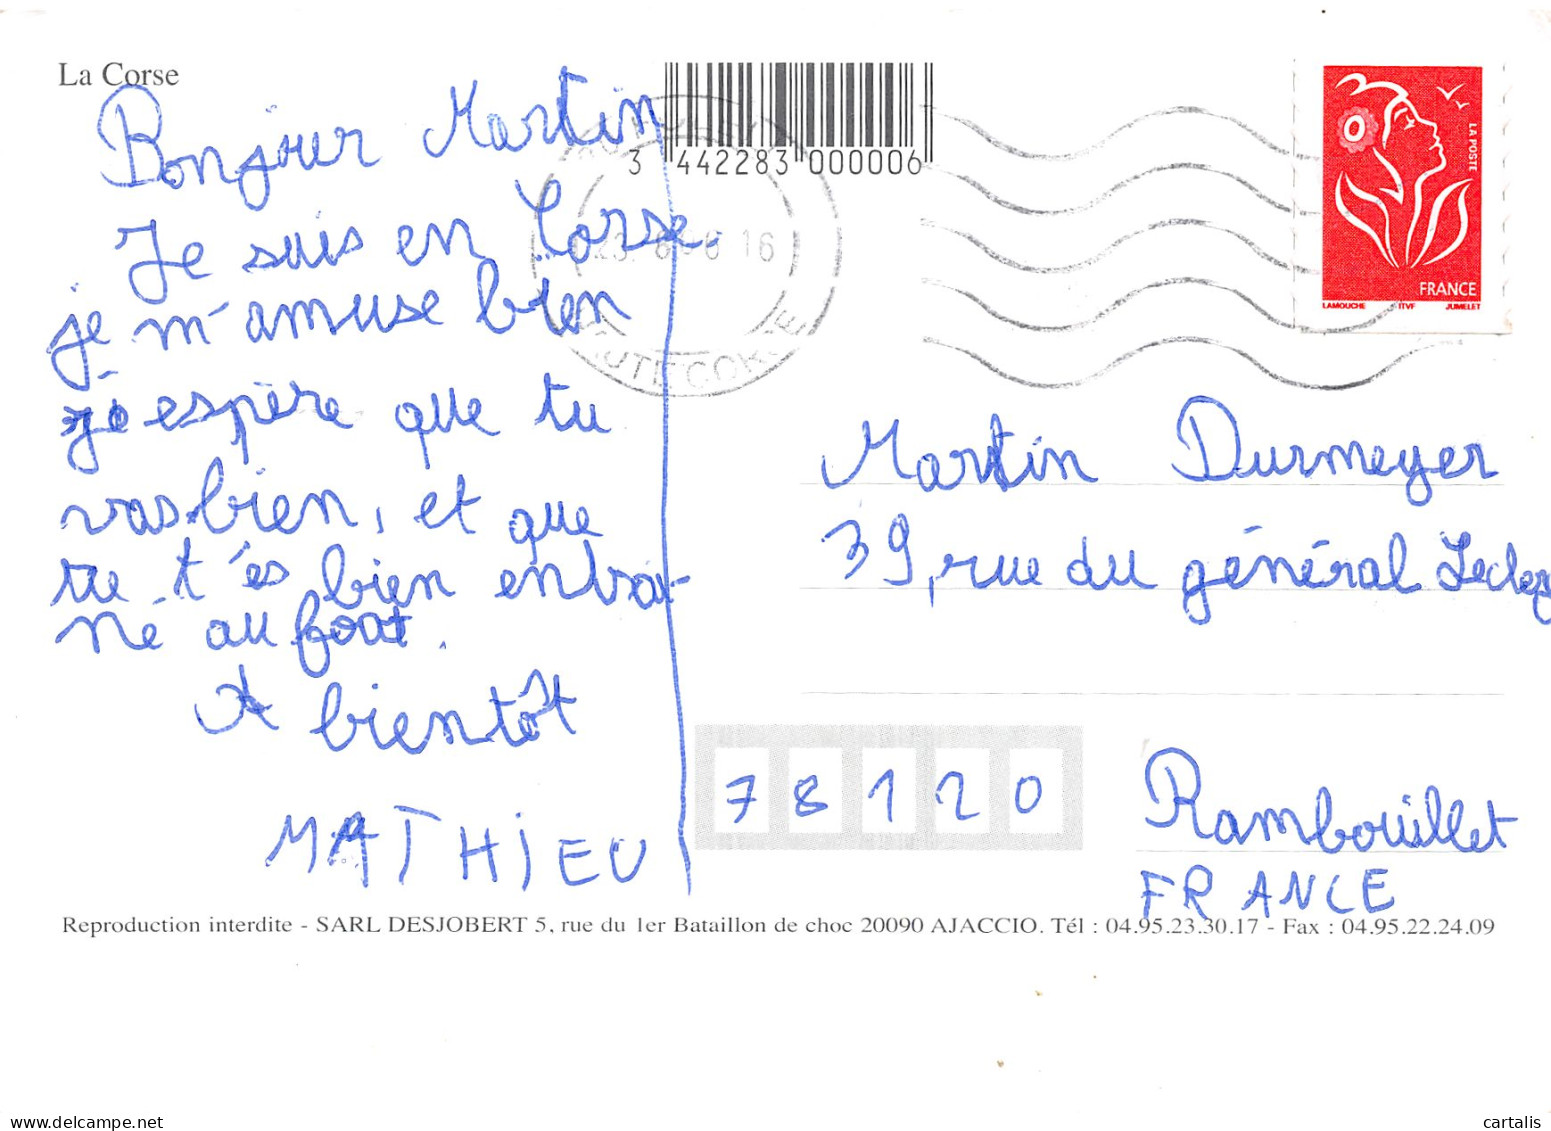 La Corse
Bonjour Martin
Je suis en Corse.
je m'amuse bien
je espère que tu
vas bien, et que
tu t'es bien entraî-
né au foot.
A bientôt
MATHIEU
3 442283 000006
16
HAUTE CORSE
LA POSTE
FRANCE
LAMOUCHE ITVF JUMELET
Martin Durmeyer
39, rue du général
78120
Rambouillet
FRANCE
Reproduction interdite - SARL DESJOBERT 5, rue du 1er Bataillon de choc 20090 AJACCIO. Tél : 04.95.23.30.17 - Fax : 04.95.22.24.09
www.delcampe.net
cartalis